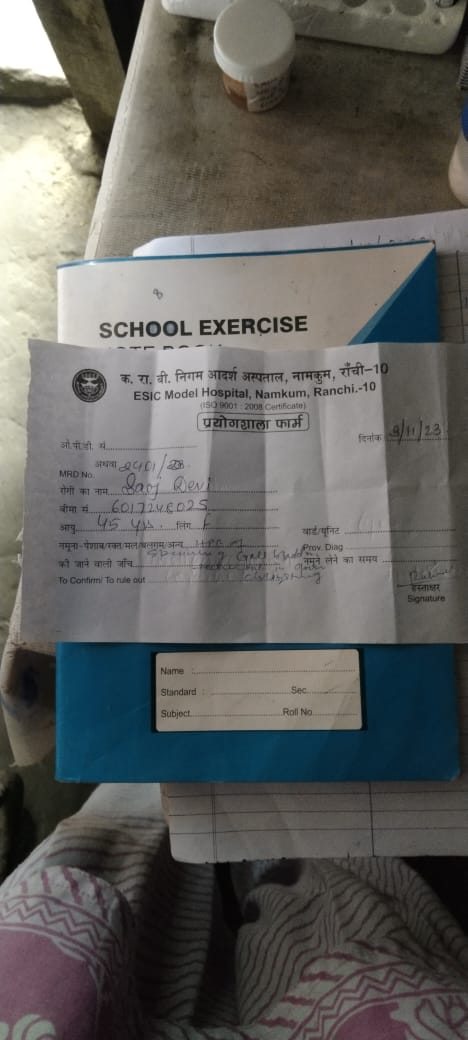 SCHOOL EXERCISE
क. रा. बी. निगम आदर्श अस्पताल, नामकुम, राँची-10
ESIC Model Hospital, Namkum, Ranchi.-10
(ISO 9001 : 2008 Certificate)
प्रयोगशाला फार्म
ओ.पी.डी. सं. दिनांक 9/11/23
अथवा 2401/
MRD No.
रोगी का नाम Saroj Devi
बीमा सं 6017248025
आयु 45 yrs लिंग F वार्ड/यूनिट
नमूना-पेशाब/रक्त/मल/बलगम/अन्य HPE of Prov. Diag
की जाने वाली जाँच Specimen of Gall bladder नमूने लेने का समय
To Confirm/ To rule out
हस्ताक्षर
Signature
Name :
Standard : Sec
Subject Roll No